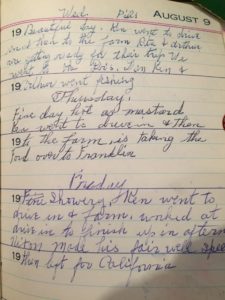 Wed AUGUST 9
19 Beautiful day. Ken went to drive
in and then to the farm Pete & Arthur
are getting ready for their trip. We
went to the Don Ken &
19 Arthur went fishing
Thursday.
Fine day hot as mustard
Ken went to drive in & then
19 to the farm is taking the
Ford over to Franklin
Friday
19 Fine Showery. Ken went to
drive in & farm. worked at
drive in to finish up in aftern
Nixon made his fairwell speec
19 then left for California